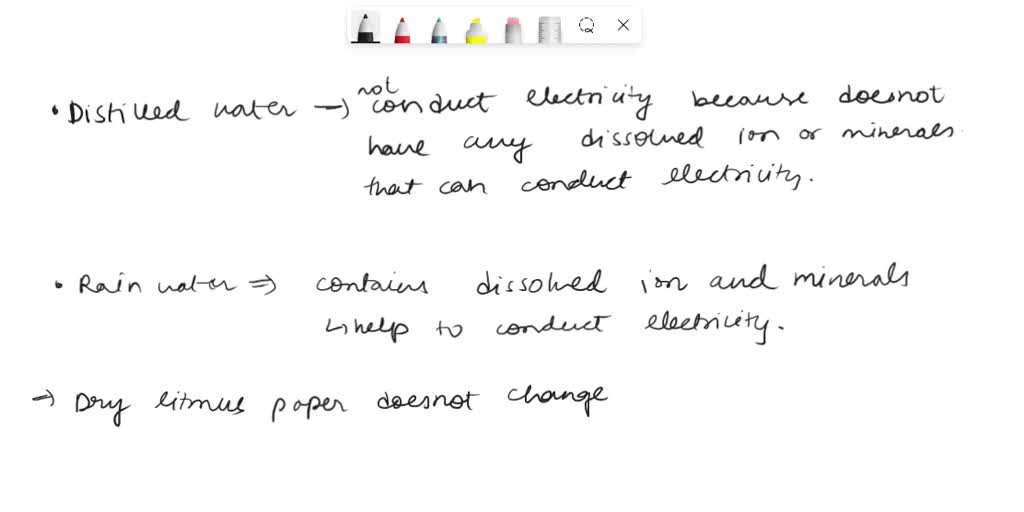 • Distilled water → not conduct electricity because doesnot
have any dissolved ion or minerals
that can conduct electricity.
• Rain water ⇒ contains dissolved ion and minerals
↳ help to conduct electricity.
→ Dry litmus paper doesnot change